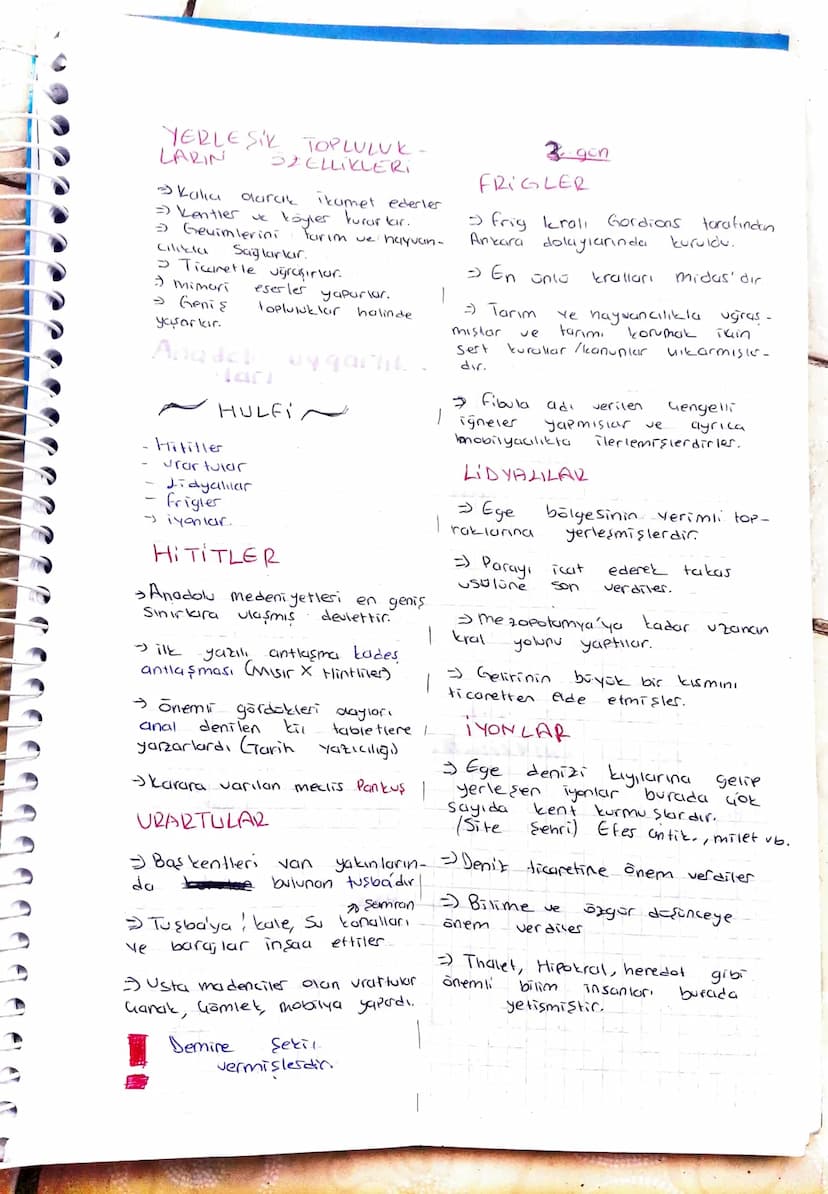 YERLEŞİK TOPLULUK-
LARIN ÖZELLİKLERİ
⇒ Kalıcı olarak ikamet ederler
⇒ Kentler ve köyler kurarlar.
⇒ Geçimlerini tarım ve hayvan-
cılıkla sağlarlar.
⇒ Ticaretle uğraşırlar.
⇒ mimari eserler yaparlar.
⇒ Geniş topluluklar halinde
yaşarlar.
Anadolu uygarlık-
ları
HULFİ
- Hititler
- urartular
- Lidyalılar
- frigler
→ iyonlar.
HİTİTLER
→ Anadolu medeniyetleri en geniş
sınırlara ulaşmış devlettir.
→ ilk yazılı antlaşma kadeş
antlaşması (Mısır X Hintliler)
→ önemli gördükleri olayları
anal denilen kil tabletlere
yarzarlardı (Tarih yazıcılığı)
→ Karara varılan meclis Pankuş
URARTULAR
⇒ Başkentleri van yakınların-
da bulunan tuşba'dır
↗ Şamran
⇒ Tuşba'ya kale, su kanalları
ve barajlar inşaa ettiler
⇒ Usta madenciler olan urartular
Çanak, Çömlek, mobilya yapardı.
! Demire şekil
vermişlerdir.
3. gün
FRİGLER
⇒ frig kralı Gordions tarafından
Ankara dolaylarında kuruldu.
⇒ En ünlü kralları midas'dır
⇒ Tarım ve hayvancılıkla uğraş-
mışlar ve tarımı korumak için
sert kurallar/kanunlar çıkarmışla-
dır.
⇒ fibula adı verilen çengelli
iğneler yapmışlar ve ayrıca
mobilyacılıkta ilerlemişlerdirler.
LİDYALILAR
⇒ Ege bölgesinin verimli top-
raklarına yerleşmişlerdir.
⇒ Parayı icat ederek takas
usülüne son verdiler.
⇒ mezopotamya'ya kadar uzanan
kral yolunu yaptılar.
⇒ Gelirinin büyük bir kısmını
ticaretten elde etmişler.
İYONLAR
⇒ Ege denizi kıyılarına gelip
yerleşen iyonlar burada çok
sayıda kent kurmuşlardır.
(Site şehri) Efes antik., milet vb.
⇒ Deniz ticaretine önem verdiler
⇒ Bilime ve özgür düşünceye
önem verdiler
⇒ Thalet, Hipokrat, heredot gibi
önemli bilim insanları burada
yetişmiştir.